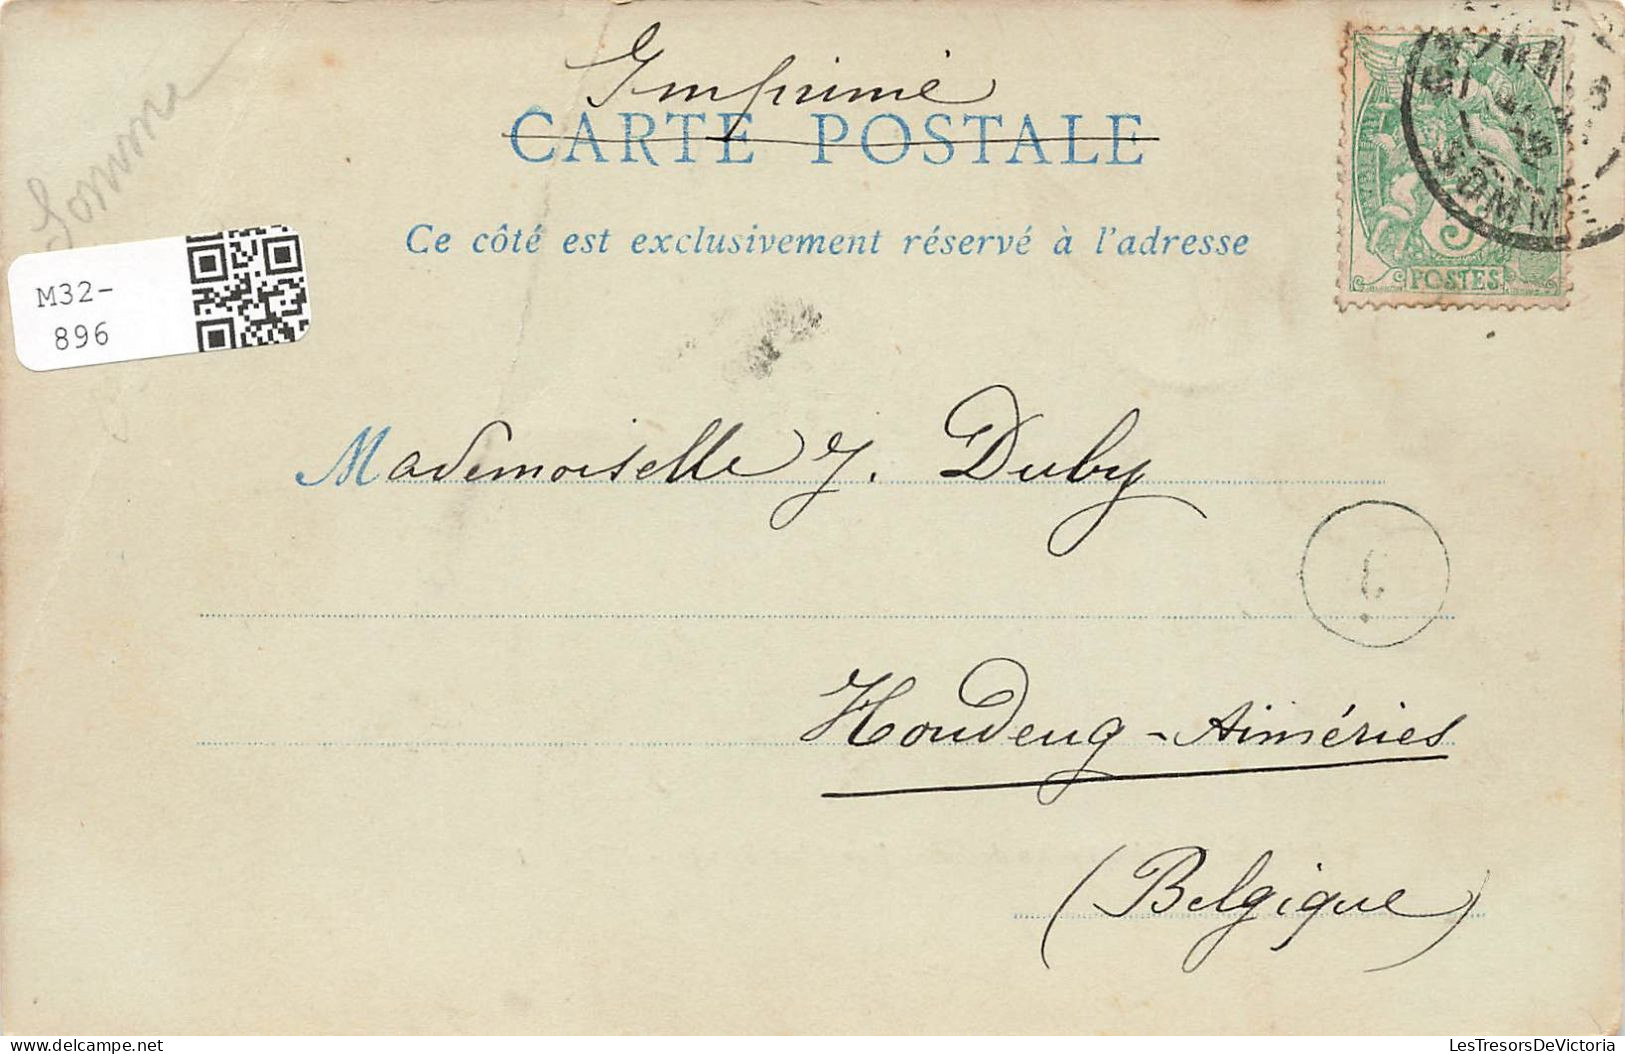 Imprimé
CARTE POSTALE
Somme
Ce côté est exclusivement réservé à l'adresse
M32-
896
5
POSTES
SOMME
Mademoiselle J. Duby
Houdeng-Aimeries
(Belgique)
LesTresorsDeVictoria.com